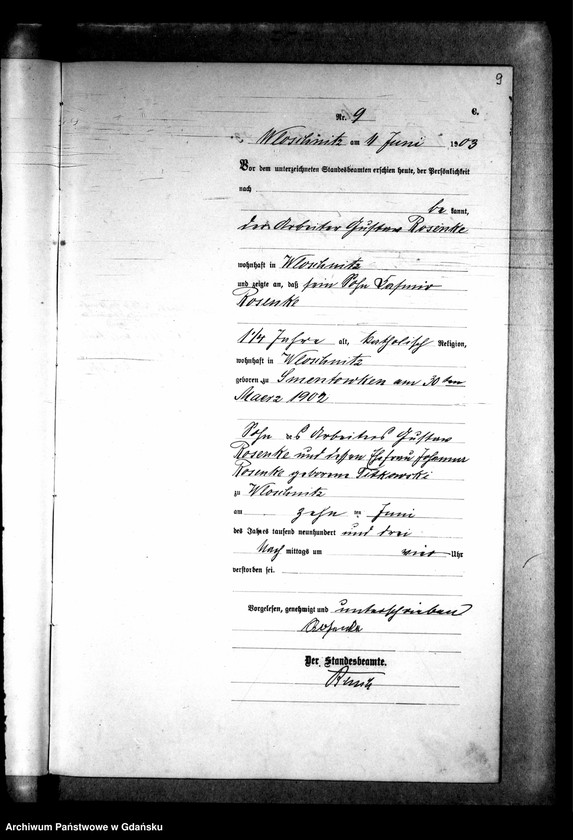 9
Nr. 9 C.
Wloschnitz am 11 Juni 1903
Vor dem unterzeichneten Standesbeamten erschien heute, der Persönlichkeit
nach
be kannt,
der Arbeiter Gustav Rosenke
wohnhaft in Wloschnitz
und zeigte an, daß sein Sohn Casimir
Rosenke
1 1/4 Jahre alt, katholisch Religion,
wohnhaft in Wloschnitz
geboren zu Smentowken am 30 ten
Maerz 1902
Sohn des Arbeiters Gustav
Rosenke und dessen Ehefrau Johanna
Rosenke geborene
zu Wloschnitz
am zehn ten Juni
des Jahres tausend neunhundert und drei
Nach mittags um vier Uhr
verstorben sei.
Vorgelesen, genehmigt und unterschrieben
Der Standesbeamte.
Archiwum Państwowe w Gdańsku